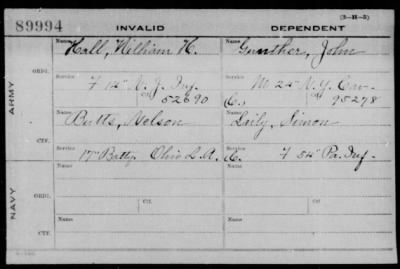 (3-H-5)
89994 INVALID DEPENDENT
Name Hall, William H. Name Gunther, John
ORIG. Service F 12" N. J. Inf. Service M 22" N.Y. Cav
52690 C. 95278
ARMY
Name Butts, Nelson Name Simon
CTF. Service 17" Batty. Ohio L. A. Service C. F 54" Pa. Inf.
Name Ctf. Name Ctf.
ORIG. Service Service
NAVY
Name Name
CTF. Service Service